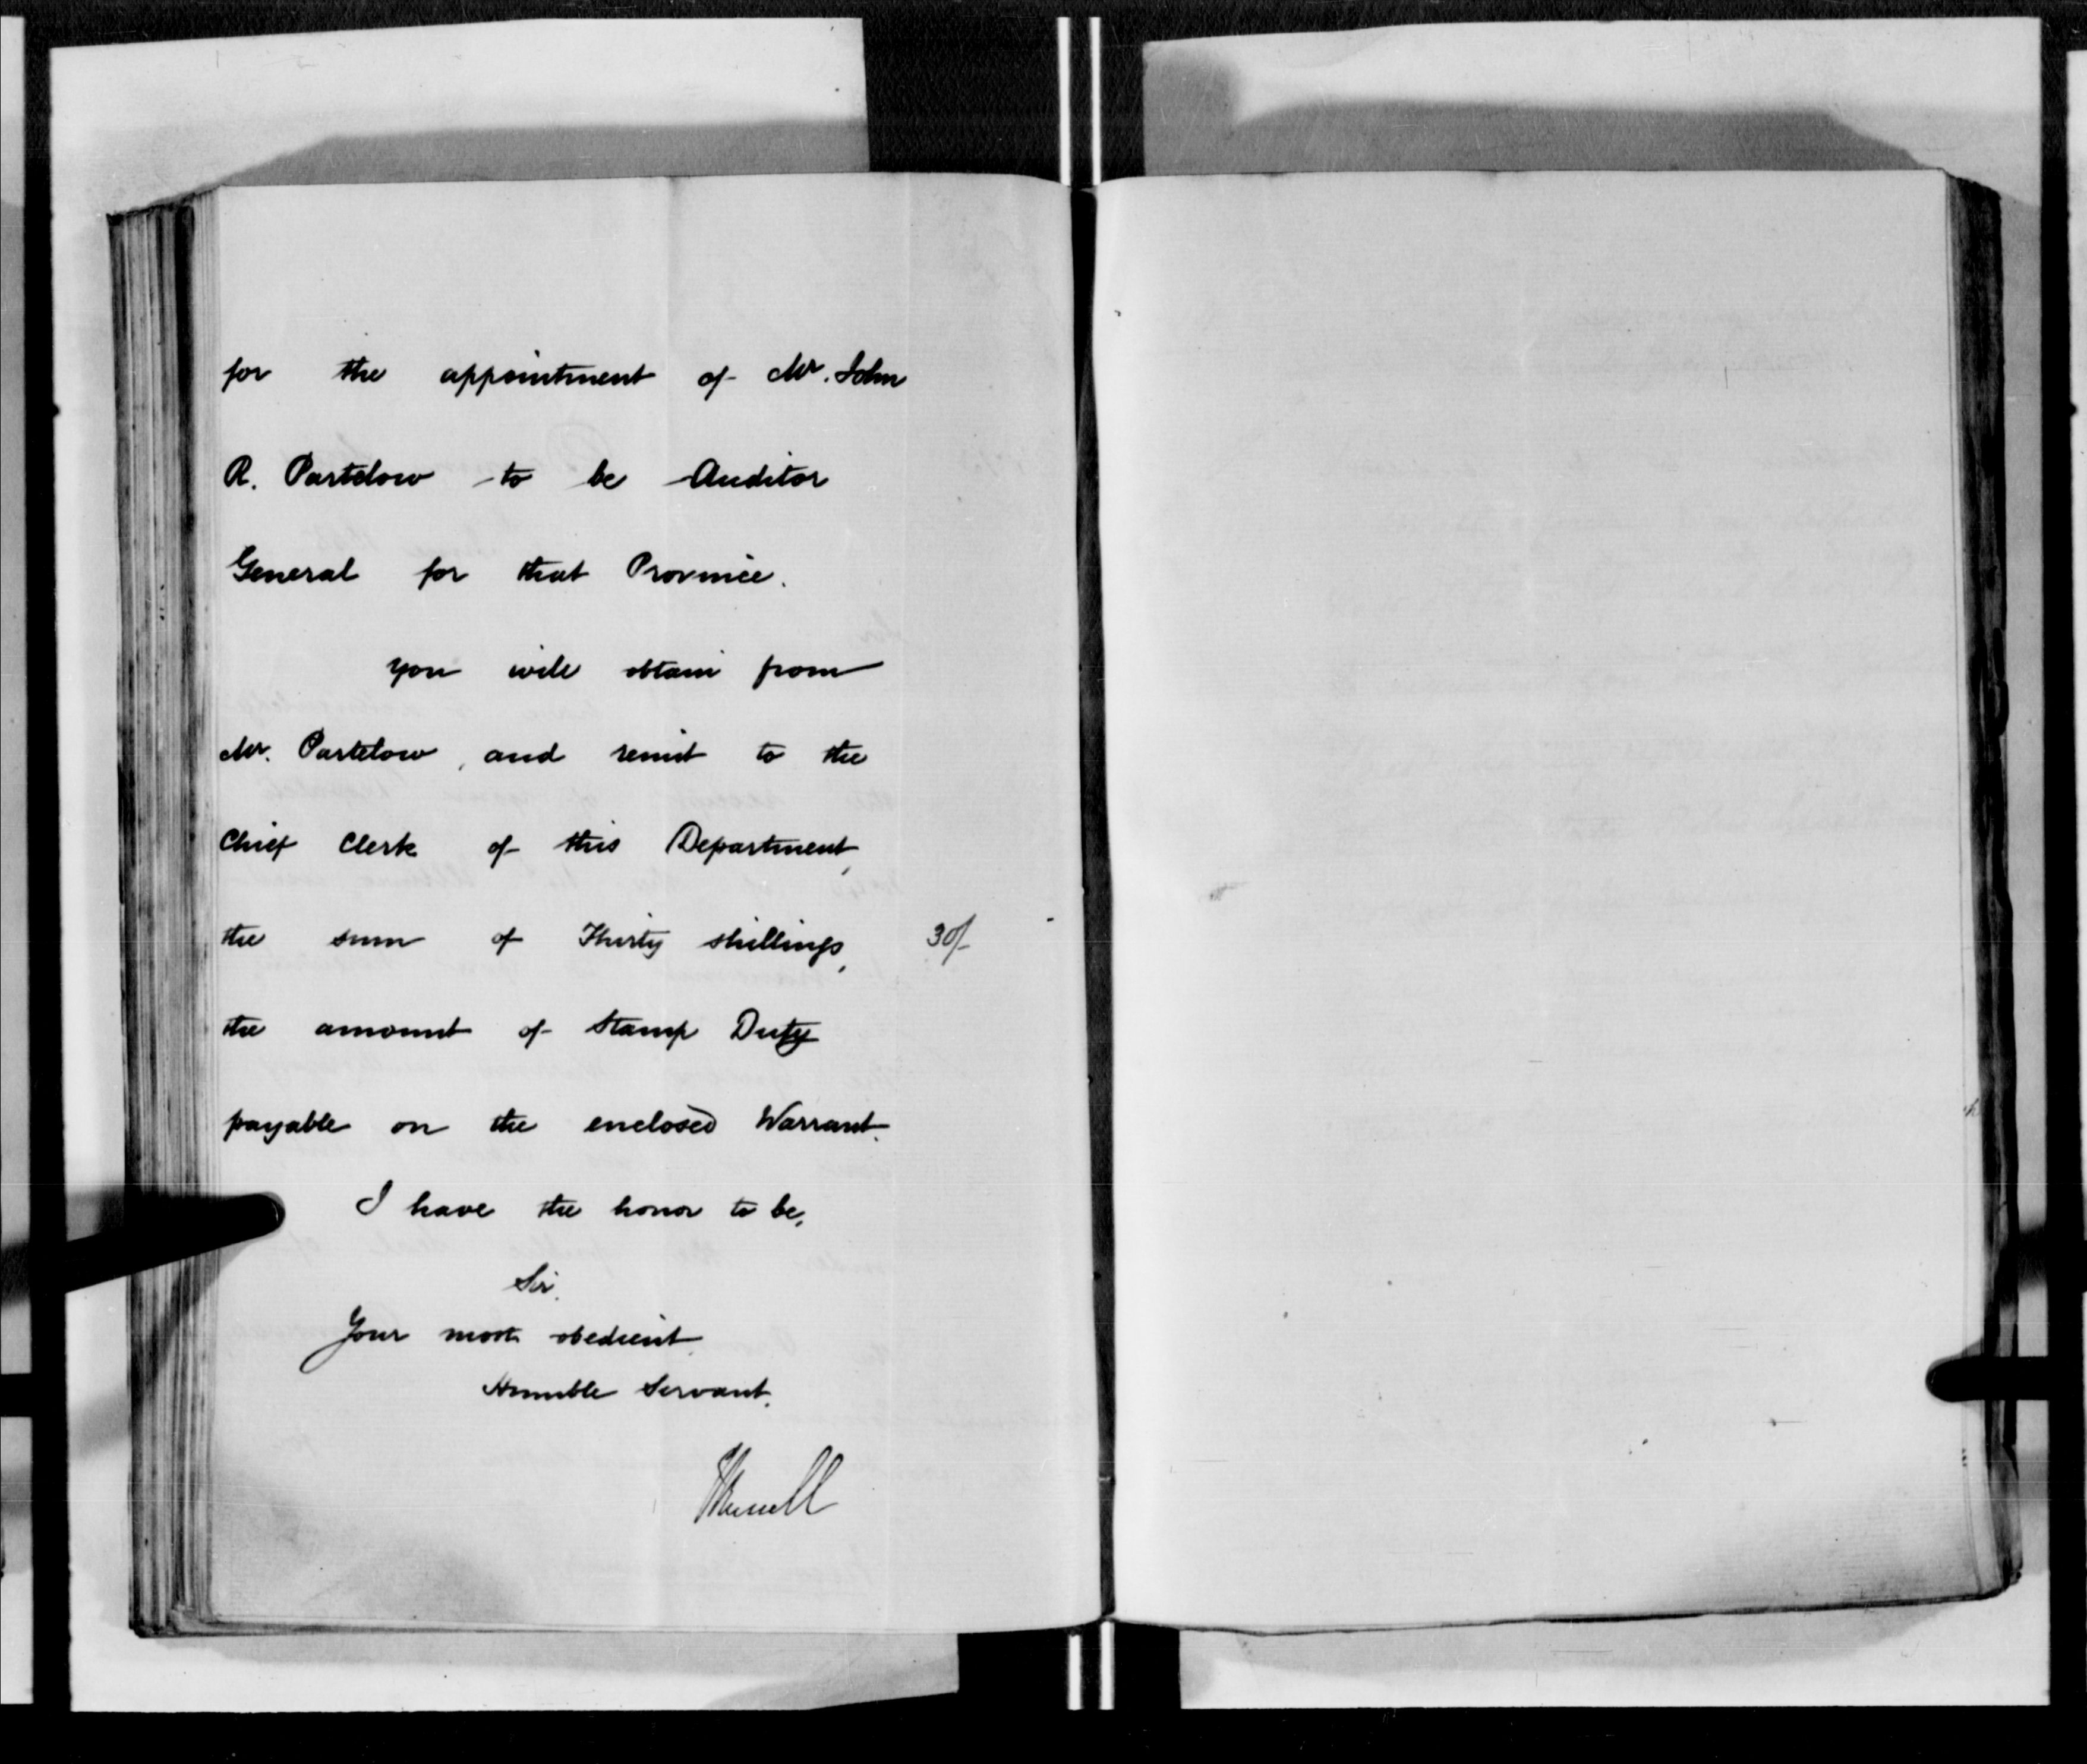 for the appointment of Mr. John
R. Partelow to be Auditor
General for that Province.
You will obtain from
Mr. Partelow, and remit to the
Chief Clerk of this Department,
the sum of Thirty shillings, 30/-
the amount of Stamp Duty
payable on the enclosed Warrant.
I have the honor to be,
Sir,
Your most obedient
Humble Servant,